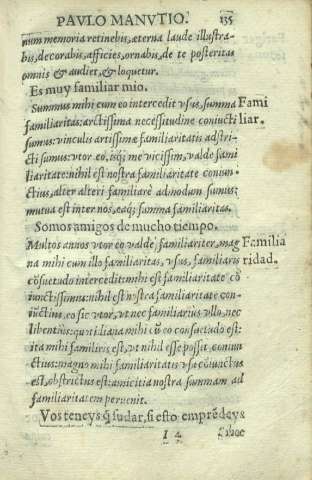 PAVLO MANVTIO. 135
num memoria retinebis, æterna laude illustra-
bis, decorabis, afficies, ornabis, de te posteritas
omnis & audiet, & loquetur.
Es muy familiar mio.
Summus mihi cum eo intercedit vsus, summa Fami
familiaritas: arctissima necessitudine coniucti liar.
sumus: vinculis artissimæ familiaritatis adstri-
cti sumus: vtor eo, isq; me vicissim, valde fami
liariter: nihil est nostra familiaritate coniun-
ctius, alter alteri familiarè admodum sumus;
mutua est inter nos, eaq; summa familiaritas.
Somos amigos de mucho tiempo.
Multos annos vtor eo valde familiariter, mag Familia
na mihi cum illo familiaritas, vsus, familiaris ridad.
cōsuetudo intercedit: mihi est familiaritate cō
iūnctissimus: nihil est nr̄a familiaritate con-
iūctius, eo sic vtor, vt nec familiariùs vllo, nec
libentiùs: quotidiana mihi cū eo consuetudo est:
ita mihi familiaris est, vt nihil esse possit, coniun
ctius: magno mihi familiaritatis vsu cōiunctus
est, obstrictus est: amicitia nostra summam ad
familiaritatem peruenit.
Vos teneys q̄ sudar, si esto emprēdeys
I 4